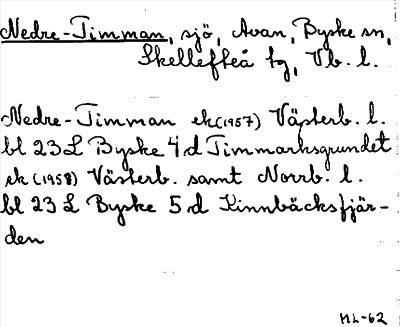 Nedre-Timman, sjö, Avan, Byske sn,
Skellefteå tg, Vb. l.
Nedre-Timman ek(1957) Västerb. l.
bl 23 L Byske 4 d Timmarksgrundet
ek (1958) Västerb. samt Norrb. l.
bl 23 L Byske 5 d Kinnbäcksfjär-
den
ML-62